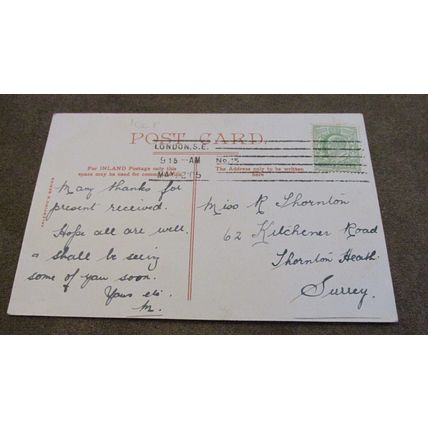 POST CARD.
LONDON, S.E.
9 15 - AM
MAY 2 05
No. 15
For INLAND Postage only this
space may be used for
The Address only to be written
here
Many thanks for
present received.
Hope all are well.
& shall be seeing
some of you soon.
Yours etc.
M.
Miss R Thornton
62 Kitchener Road
Thornton Heath.
Surrey.